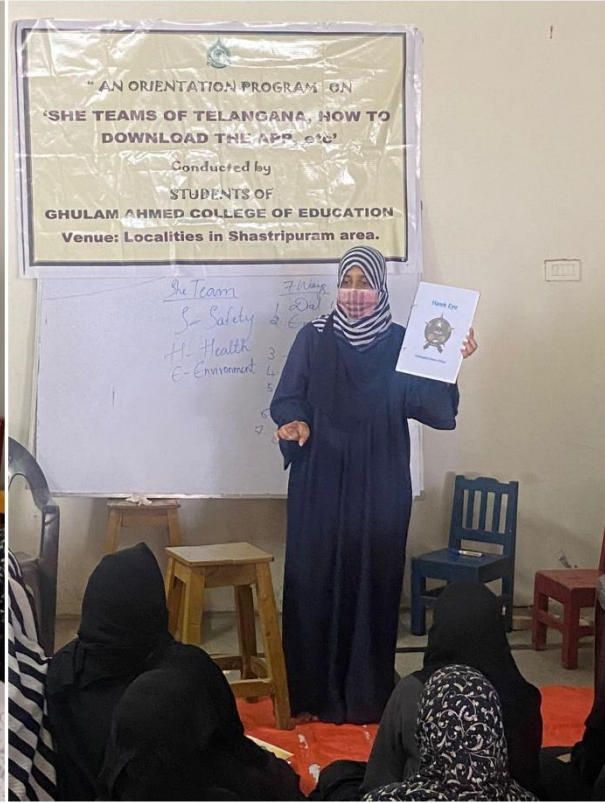 " AN ORIENTATION PROGRAM" ON
'SHE TEAMS OF TELANGANA, HOW TO
DOWNLOAD THE APP, etc'
Conducted by
STUDENTS OF
GHULAM AHMED COLLEGE OF EDUCATION
Venue: Localities in Shastripuram area.
She Team
S- Safety
H- Health
E- Environment
7 Ways
1 Dial
2.
3
4
5
6
7.
Hawk Eye